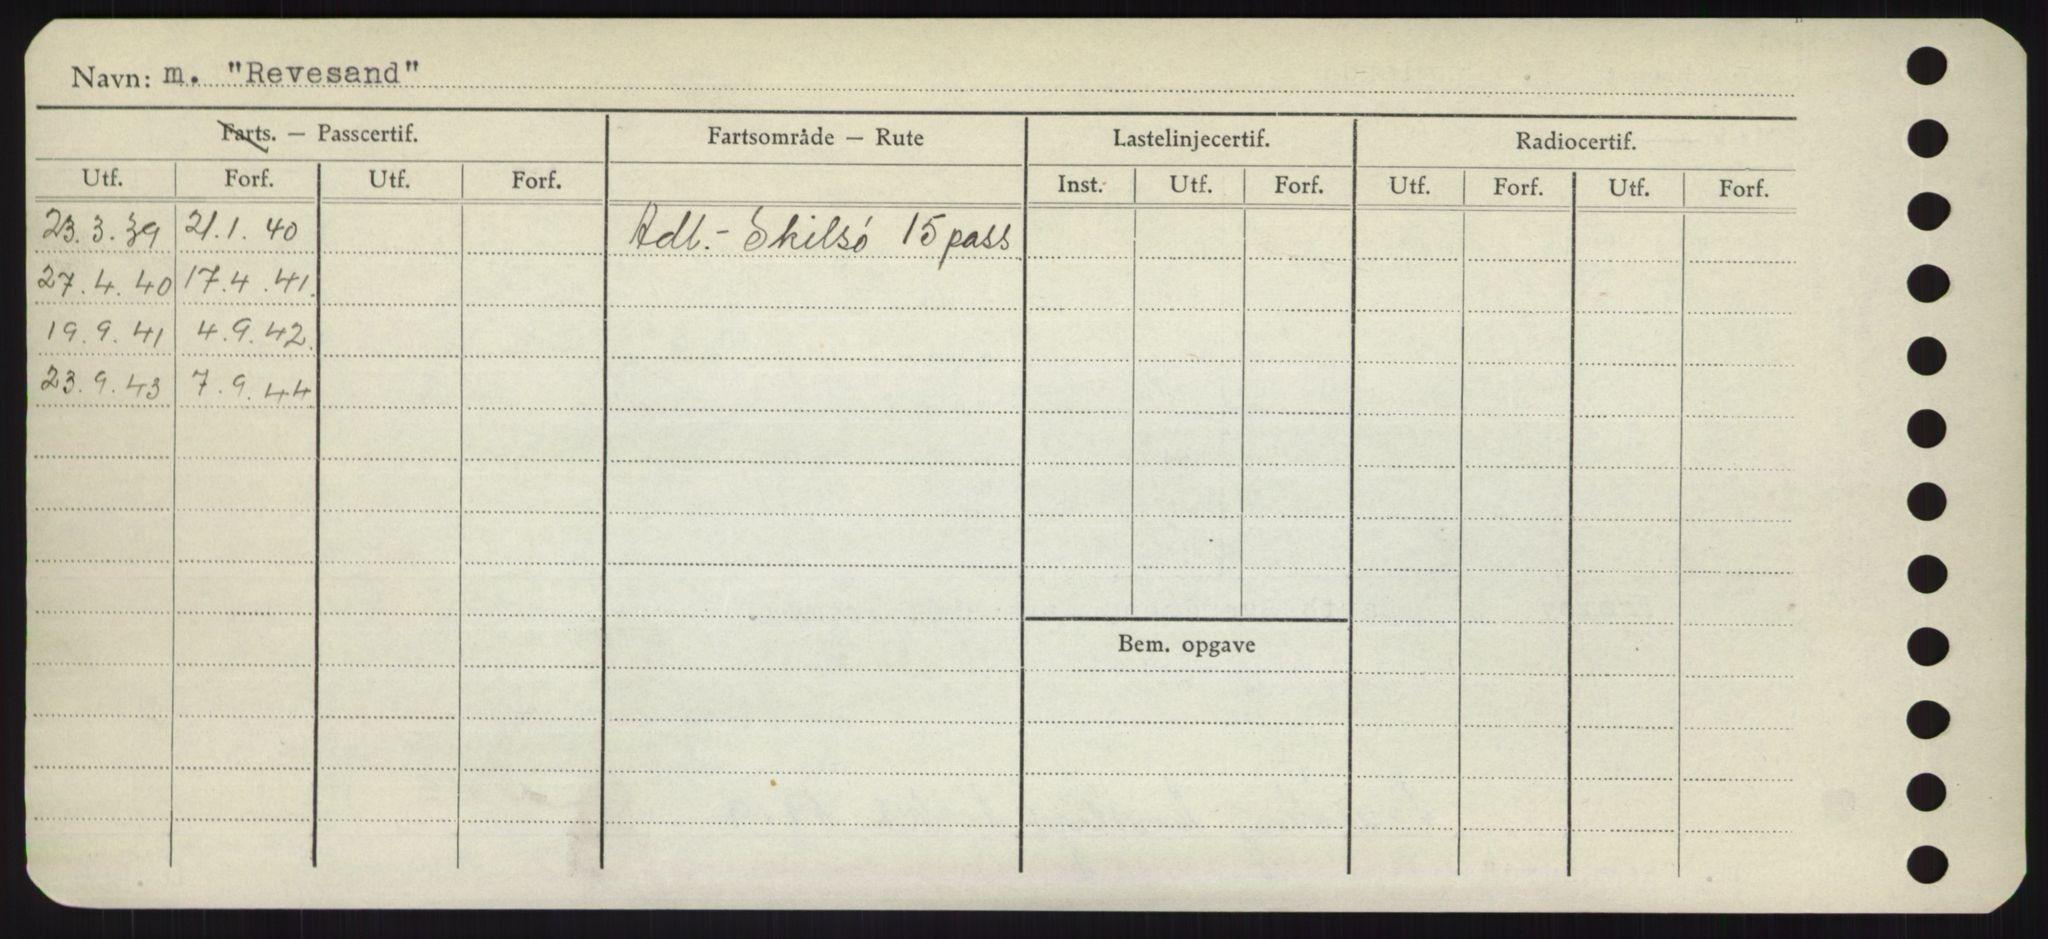 Navn: m. "Revesand"
Farts. — Passcertif. Fartsområde — Rute Lastelinjecertif. Radiocertif.
Utf. Forf. Utf. Forf. Inst. Utf. Forf. Utf. Forf. Utf. Forf.
23.3.39 21.1.40 Adl.- Skilsö 15 pass
27.4.40 17.4.41.
19.9.41 4.9.42.
23.9.43 7.9.44
Bem. opgave